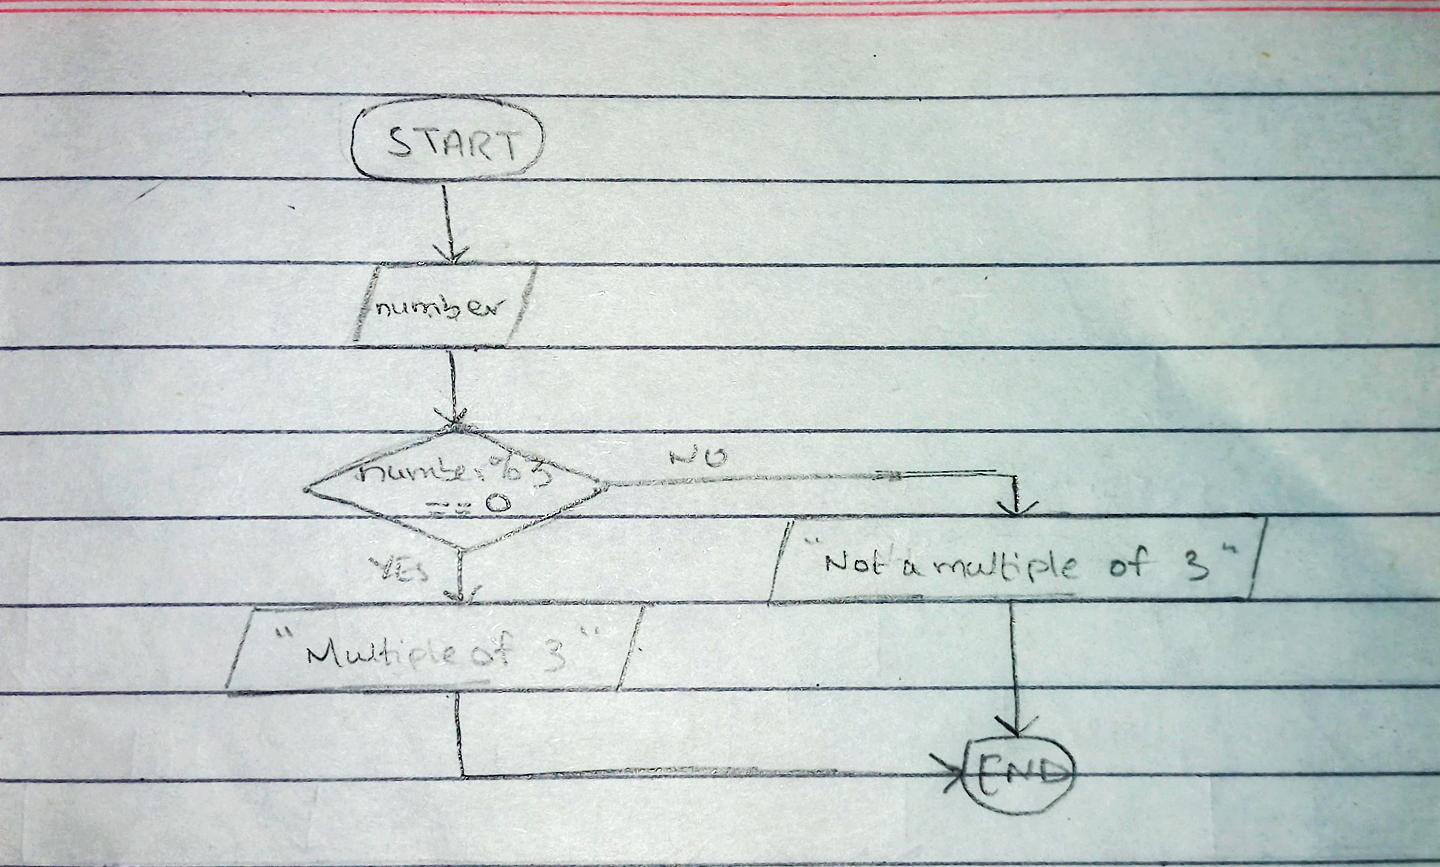 START
number
number % 3
== 0
NO
YES
"Not a multiple of 3"
"Multiple of 3"
END